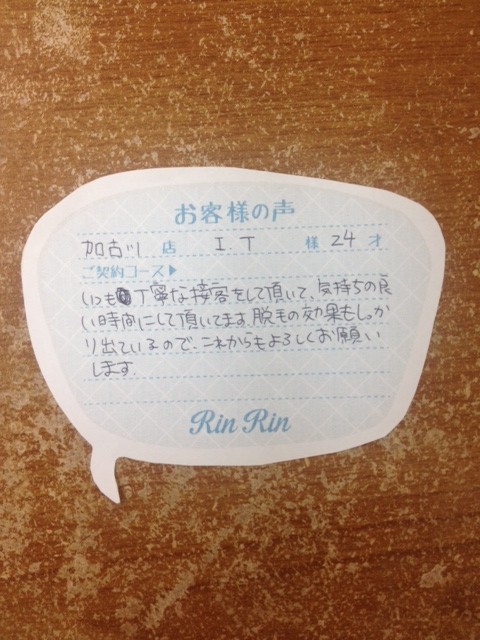 お客様の声
加古川 店 I.T 様 24 才
ご契約コース▶
いつも丁寧な接客をして頂いて、気持ちの良
い時間にして頂いてます。脱毛の効果もしっか
り出ているので、これからもよろしくお願い
します。
Rin Rin